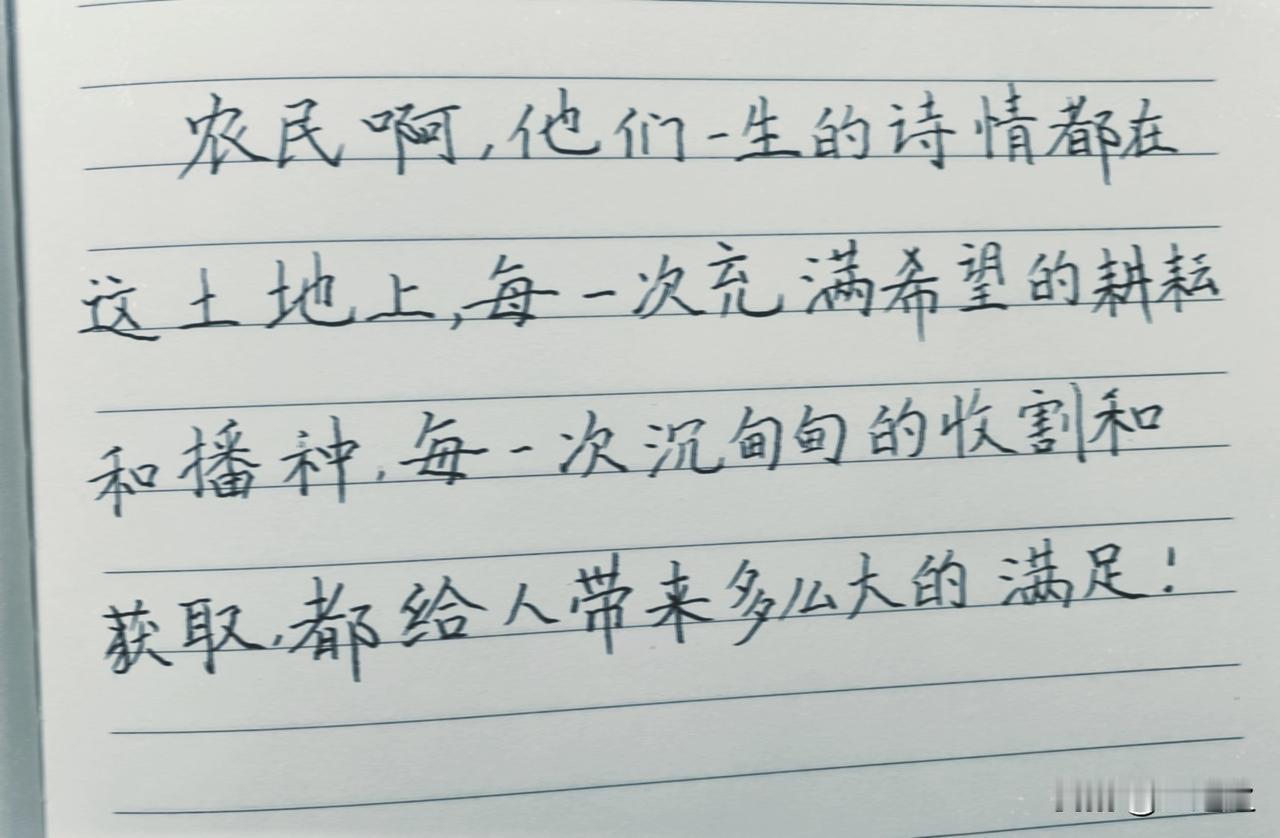 农民啊,他们一生的诗情都在
这土地上,每一次充满希望的耕耘
和播种,每一次沉甸甸的收割和
获取,都给人带来多么大的满足!